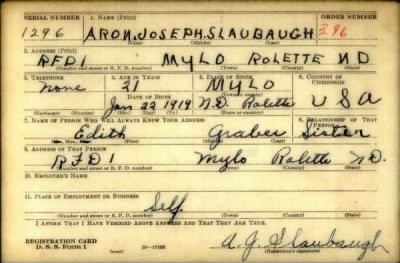 SERIAL NUMBER 1. NAME (Print) ORDER NUMBER
1296 AROM, JOSEPH, SLAUBAUGH 396
(First) (Middle) (Last)
2. ADDRESS (Print)
RFD1 MYLO ROLETTE ND
(Number and street or R. F. D. number) (Town) (County) (State)
3. TELEPHONE 4. AGE IN YEARS 5. PLACE OF BIRTH 6. COUNTRY OF CITIZENSHIP
None 21 MYLO
DATE OF BIRTH (Town or county)
Jan 22 1919 N.D. Rolette USA
(Exchange) (Number) (Mo.) (Day) (Yr.) (State or country)
7. NAME OF PERSON WHO WILL ALWAYS KNOW YOUR ADDRESS 8. RELATIONSHIP OF THAT PERSON
Edith Graber Sister
(Mr., Mrs., Miss) (First) (Middle) (Last)
9. ADDRESS OF THAT PERSON
RFD1 Mylo Rolette N.D.
(Number and street or R. F. D. number) (Town) (County) (State)
10. EMPLOYER'S NAME
11. PLACE OF EMPLOYMENT OR BUSINESS
Self
(Number and street or R. F. D. number) (Town) (County) (State)
I AFFIRM THAT I HAVE VERIFIED ABOVE ANSWERS AND THAT THEY ARE TRUE.
REGISTRATION CARD
D. S. S. Form 1 (over) 16—17105
A. J. Slaubaugh
(Registrant's signature)